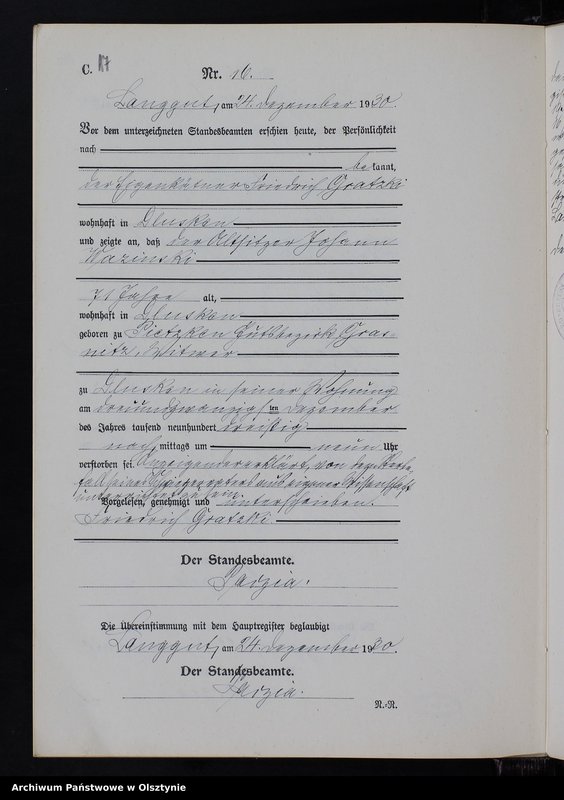 C. 17
Nr. 16.
Langgut, am 24. Dezember 1930.
Vor dem unterzeichneten Standesbeamten erschien heute, der Persönlichkeit
nach
bekannt,
der Eigenkätner Friedrich Gratzki
wohnhaft in Dlusken
und zeigte an, daß der Altsitzer Johann
Wazinski
71 Jahre alt,
wohnhaft in Dlusken
geboren zu Pietzken Gutsbezirk Gras-
nitz, Witwer
zu Dlusken in seiner Wohnung
am dreiundzwanzigsten Dezember
des Jahres tausend neunhundert dreißig
nachmittags um neun Uhr
verstorben sei. Anzeigender erklärt, von dem Sterbe-
fall aus eigener Wissenschaft
unterrichtet zu sein.
Vorgelesen, genehmigt und unterschrieben.
Friedrich Gratzki
Der Standesbeamte.
Die Übereinstimmung mit dem Hauptregister beglaubigt
Langgut, am 24. Dezember 1930.
Der Standesbeamte.
N.-R.
Archiwum Państwowe w Olsztynie